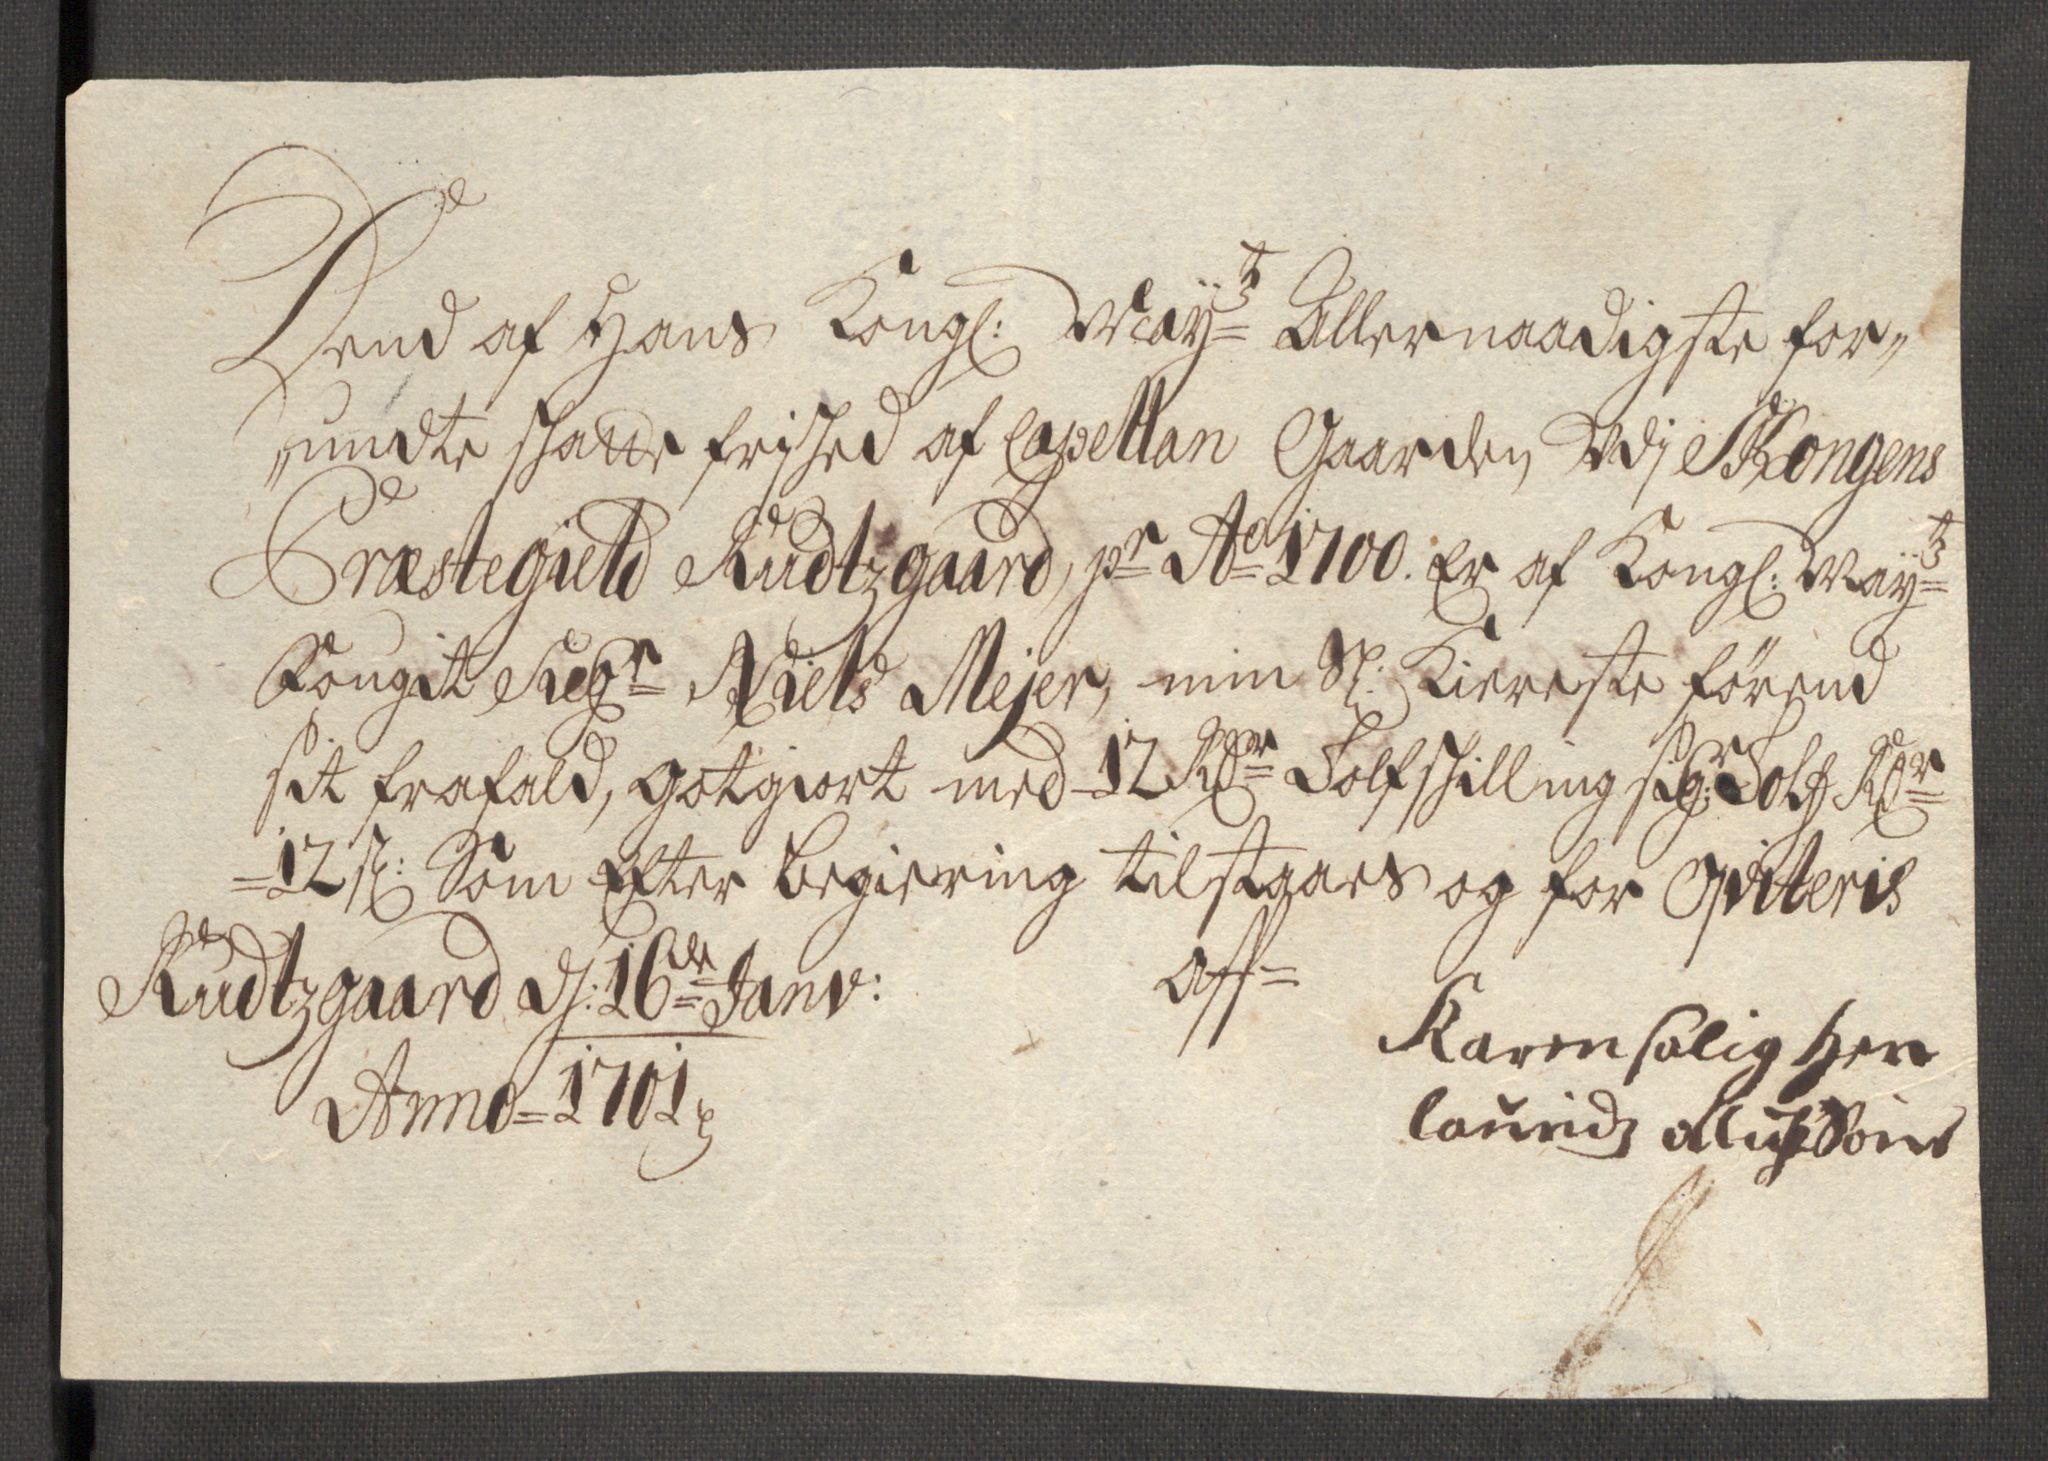 Dend af Hans Kongl: Mayts Allernaadigste for„
„undte schatte frihed af Capellan Gaarden Udj Skongens
Præstegield Rudtzgaard, pr Ao 1700. Er af Kongl: Mayts
Fougit Sigr Niels Mejer, min Sl: Kiereste førend
sit frafald, gotgiort med 12 Rdr Tolfschilling siger Tolf Rdr
12 s: Som Efter begiering tilstaaes og for qviteris
Rudtzgaard dj: 16de Janv: aff
Anno 1701
Karen salig her
lauridz